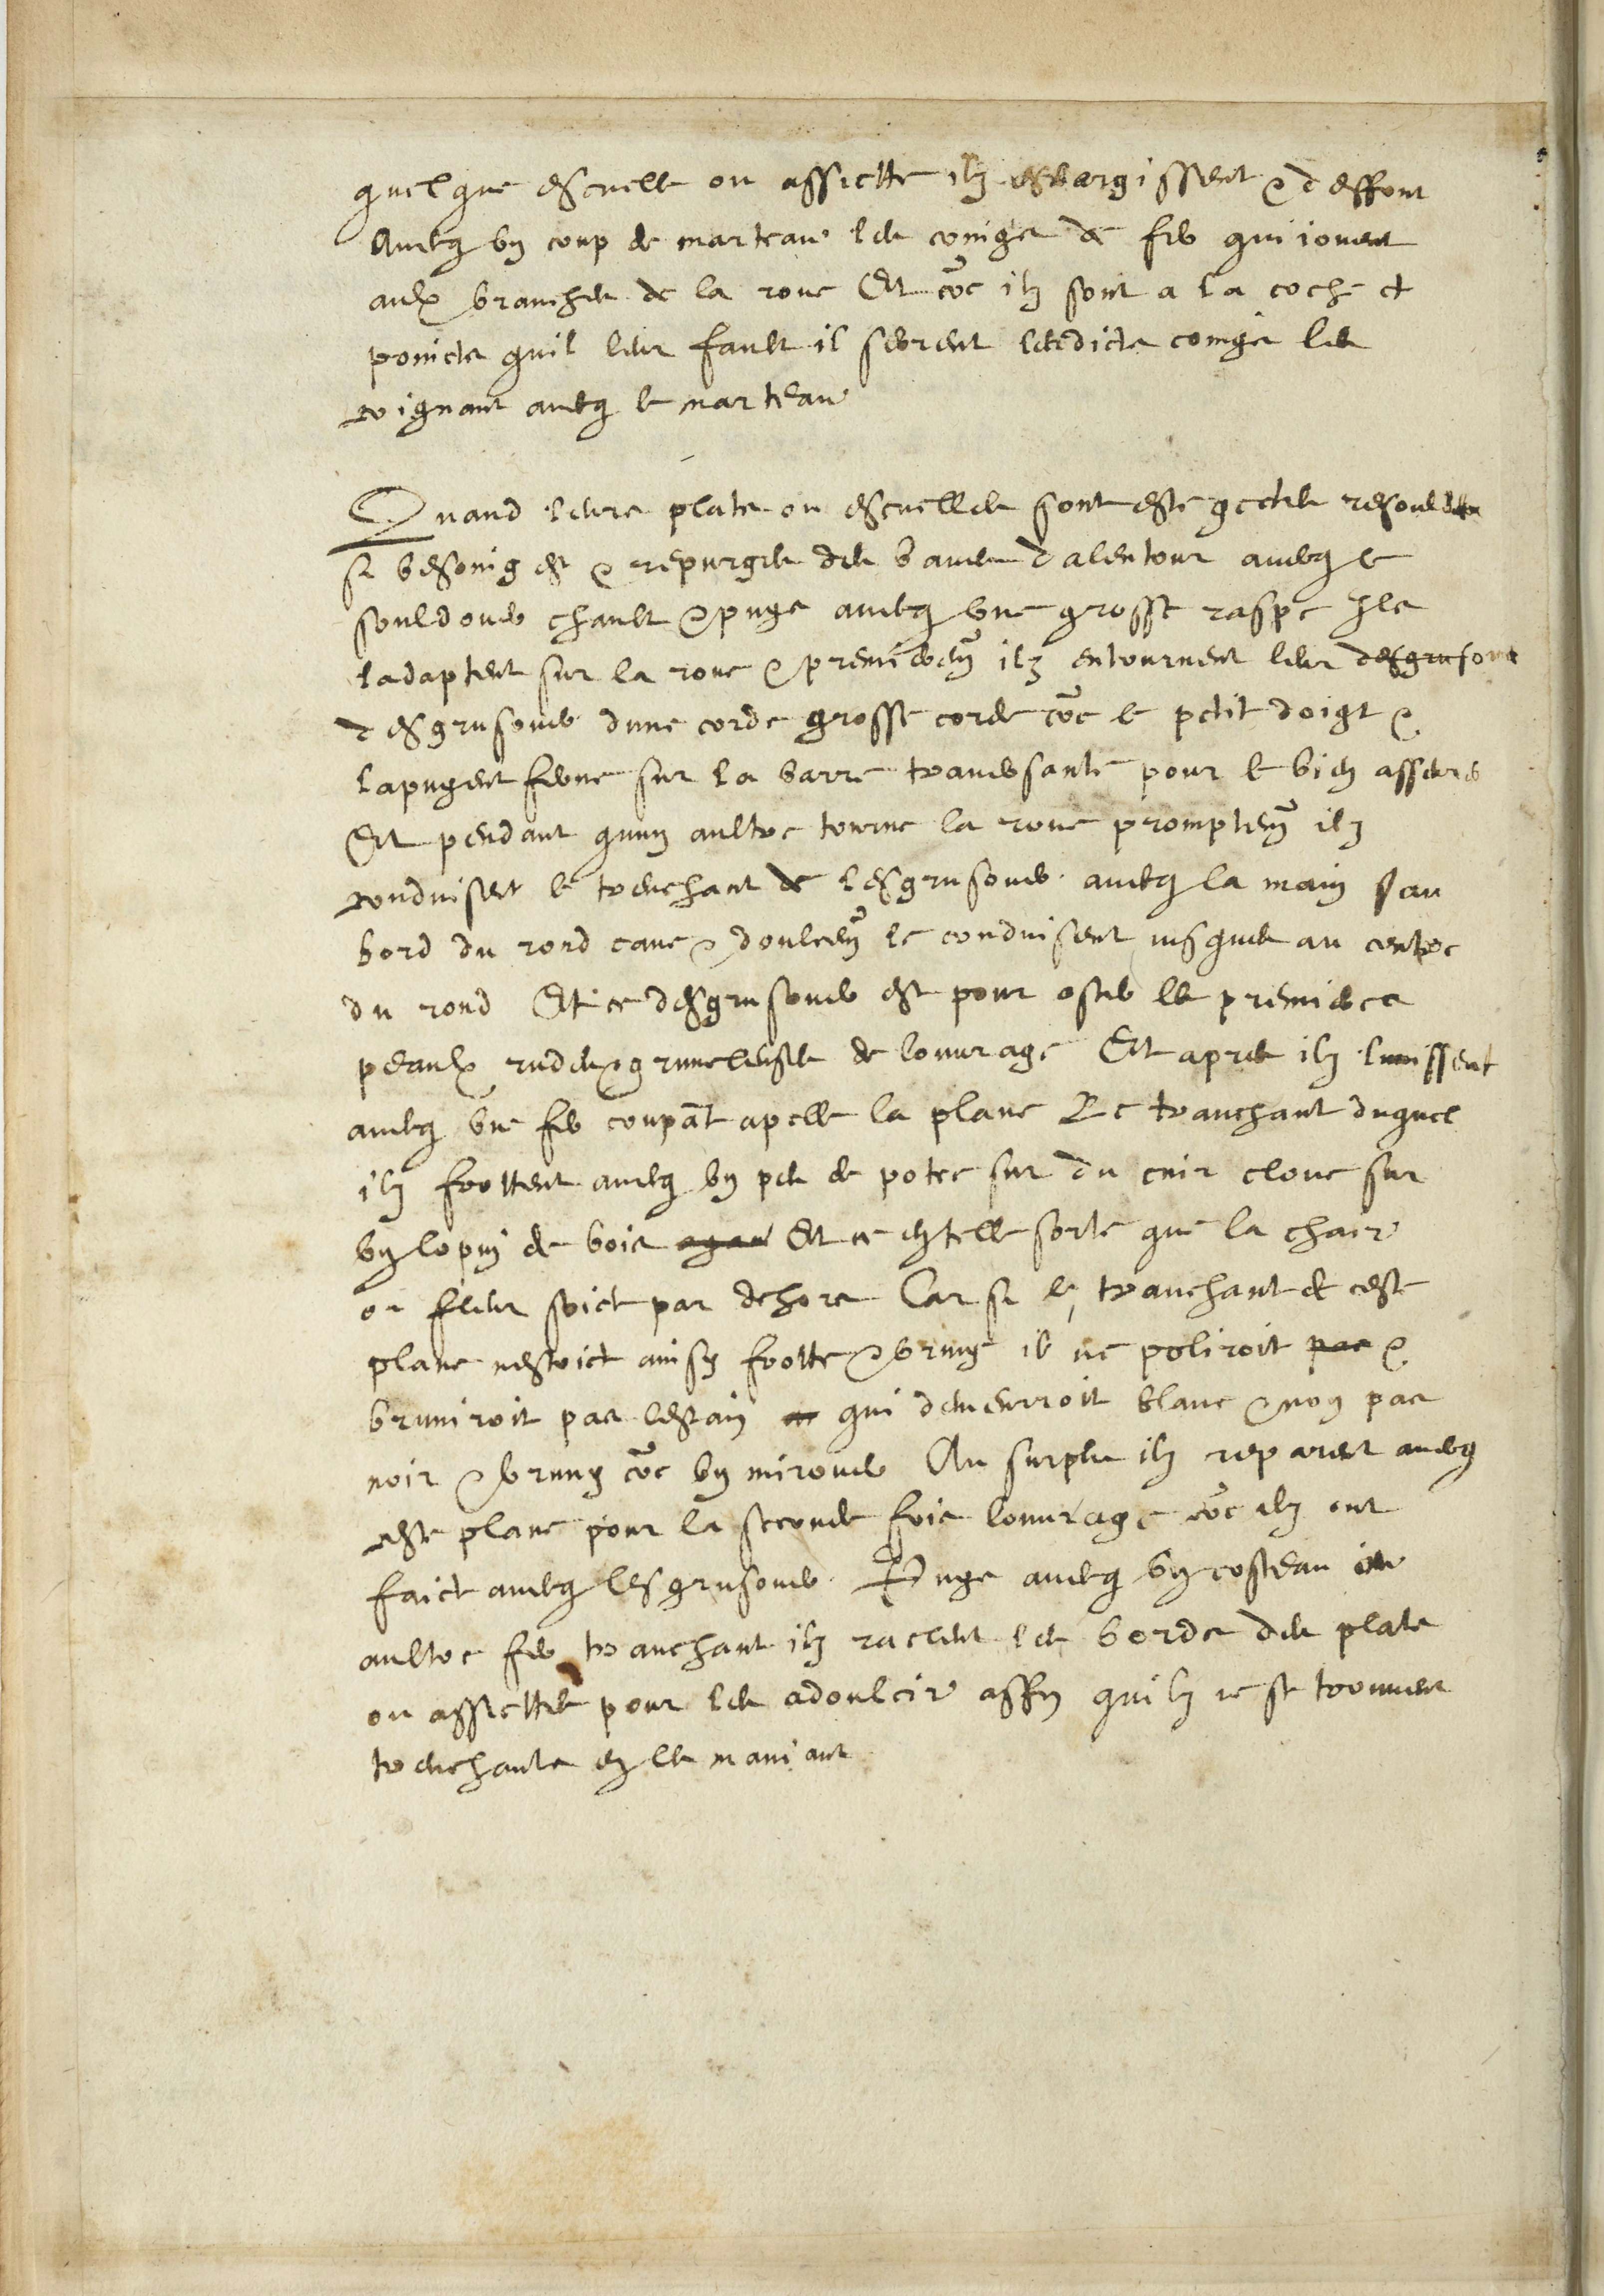 quelque escuelle ou assiette ilz eslargissent & deffont
Avecq un coup de marteau les coings de fer qui jouent
aulx branches de la roue Et co{mm}e ilz sont a la coche et
poincts quil leur fault il serrent lesdicts coings les
coignant avecq le marteau
Quand leurs plats ou escuelles sont este gectes resouldes
si besoing est & repurges des baves dalentour avecq le
souldoir chault & puys avecq une grosse raspe Ils
ladaptent sur la roue & premierem{ent} ilz entournent leur desgrusoi
desgrusouer dune corde grosse corde co{mm}e le petit doigt &
lapuyent ferme sur la barre traversante pour le bien asseurer
Et pendant quun aultre tourne la roue promptem{ent} ilz
conduisent le trenchant de lesgrusouer avecq la main au
bord du rond cave & doulcem{ent} le conduisent jusques au centre
du rond Et ce desgrusouer est pour oster les premieres
peaulx rudes & grumeleuses de louvrage Et apres ilz lunissent
avecq un fer coupa{n}t apelle la plane Le tranchant duquel
ilz frottent avecq un peu de potee sur du cuir cloue sur
un lopin de bois Et ce en telle sorte que la chair
ou fleur soict par dehors Car si le tranchant de ceste
plane nestoict ainsy frotte & bruny il ne poliroit pas &
bruniroit pas lestain qui demeurroit blanc & non pas
noir & bruny co{mm}e un mirouer Au surplus ilz reparent avecq
ceste plane pour la seconde fois louvrage co{mm}e ilz ont
faict avecq lesgrusouer Puys avecq un costeau ou
aultre fer tranchant ilz raclent les bords des plats
ou assiettes pour les adoulcir affin quilz ne se trouvent
trenchants en les maniant